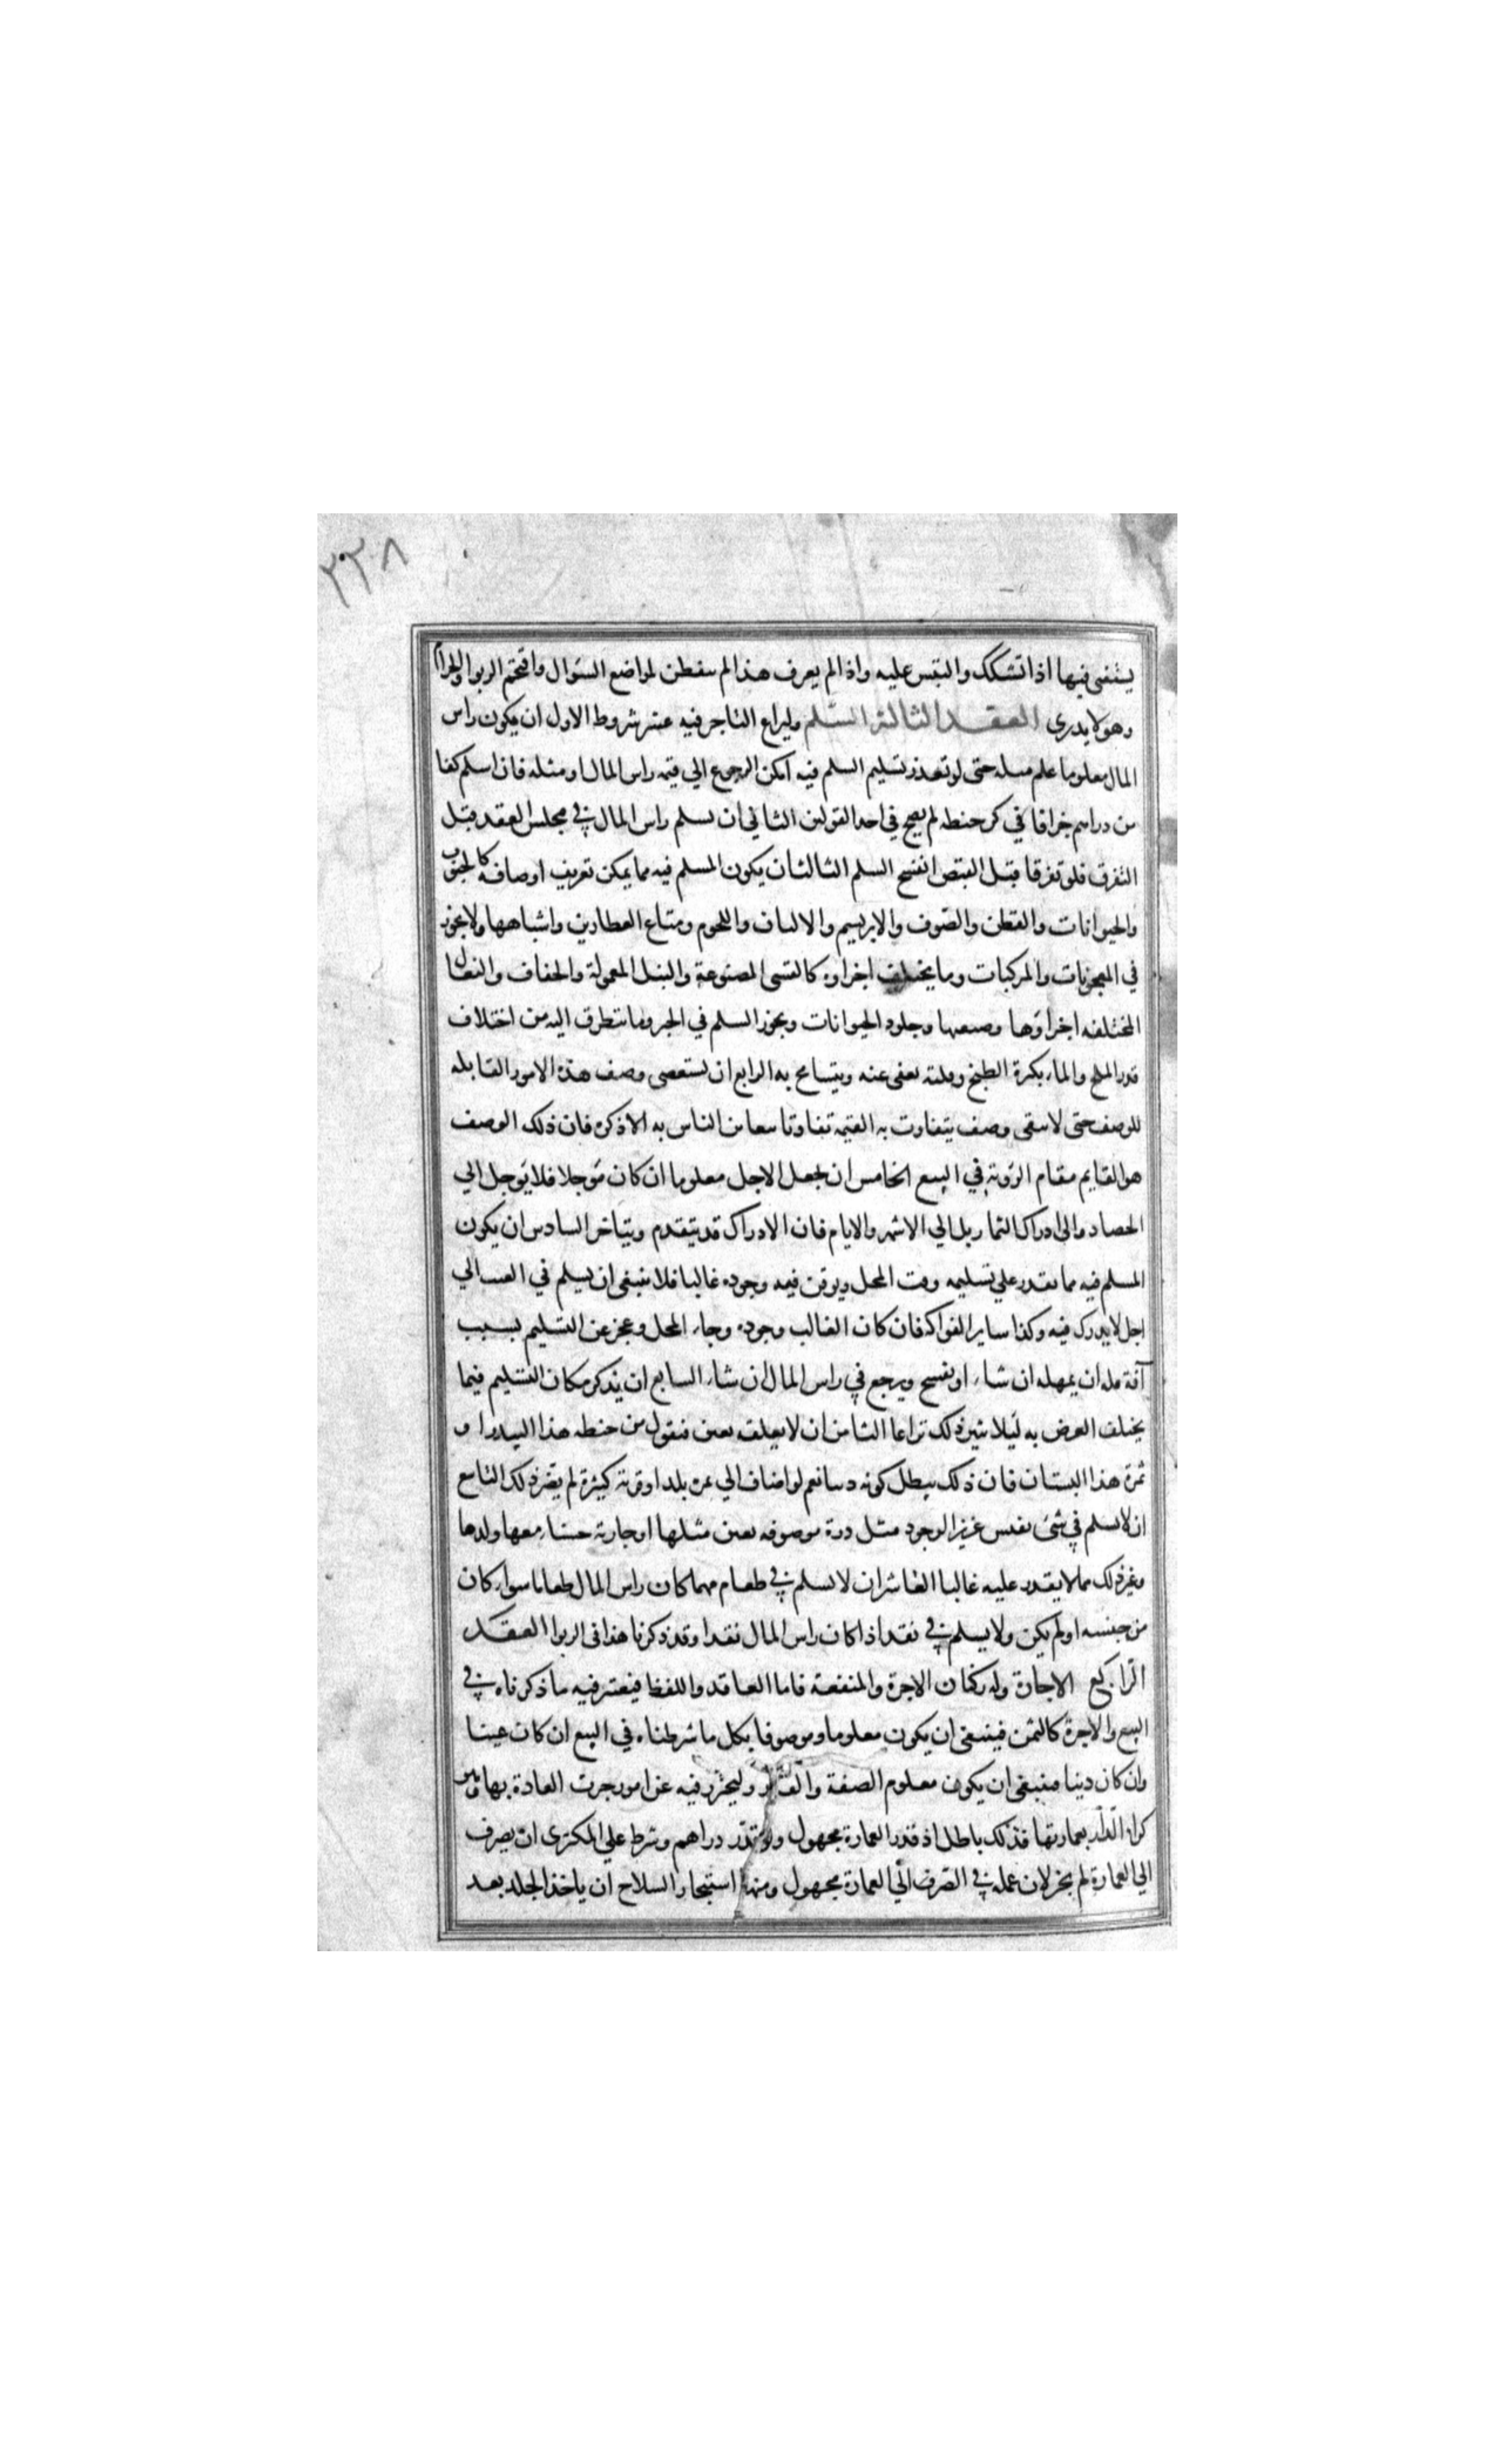 ٢٣٨
يستفتى فيها اذا تشكك والتبس عليه واذا لم يعرف هذا لم يتفطن لمواضع السؤال واقتحم الربوا والحرام
وهو لا يدري العقد الثالث السلم وليراع التاجر فيه عشر شروط الاول ان يكون راس
المال معلوما علم مثله حتى لو تعذر تسليم المسلم فيه امكن الرجوع الي قيمة راس المال او مثله فان اسلم كفا
من دراهم جزافا في كر حنطه لم يصح في احد القولين الثاني ان يسلم راس المال في مجلس العقد قبل
التفرق فلو تفرقا قبل القبض انفسخ السلم الثالث ان يكون المسلم فيه مما يمكن تعريف اوصافه كالحبوب
والحيوانات والقطن والصوف والابريسم والالبان واللحوم ومتاع العطارين واشباهها ولا يجوز
في المعجونات والمركبات وما يختلف اجزاوه كالقسى المصنوعة والنبل المعمولة والخفاف والنعال
المختلفه اجزاؤها وصنعتها وجلود الحيوانات ويجوز السلم في الخبز وما يتطرق اليه من اختلاف
قدر الملح والماء بكثرة الطبخ وقلته يعفى عنه ويتسامح به الرابع ان يستقصى وصف هذه الامور القابله
للوصف حتى لا يبقى وصف يتفاوت به القيمه تفاوتا لا يتغابن الناس به الا ذكره فان ذلك الوصف
هو القايم مقام الرؤية في البيع الخامس ان يجعل الاجل معلوما ان كان مؤجلا فلا يؤجل الي
الحصاد والى ادراك الثمار بل الي الاشهر والايام فان الادراك قد يتقدم ويتاخر السادس ان يكون
المسلم فيه مما يقدر علي تسليمه وقت المحل ويومن فيه وجوده غالبا فلا ينبغى ان يسلم في العنب الي
اجل لا يدرك فيه وكذا ساير الفواكه فان كان الغالب وجوده وجاء المحل وعجز عن التسليم بسبب
آفة فله ان يمهله ان شاء او يفسخ ويرجع في راس المال ان شاء السابع ان يذكر مكان التسليم فيما
يختلف الغرض به ليلا يثير ذلك نزاعا الثامن ان لا يعلقه بعين فيقول من حنطه هذا البيدر او
ثمرة هذا البستان فان ذلك يبطل كونه دينا نعم لو اضاف الي ثمرة بلد او قرية كبيرة لم يضر ذلك التاسع
ان لا يسلم في شئ نفيس عزيز الوجود مثل درة موصوفه يعز مثلها او جارية حسناء معها ولدها
وغير ذلك مما لا يقدر عليه غالبا العاشر ان لا يسلم في طعام مهما كان راس المال طعاما سواء كان
من جنسه او لم يكن ولا يسلم في نقد اذا كان راس المال نقدا وقد ذكرنا هذا فى الربوا العقد
الرابع الاجارة وله ركنان الاجرة والمنفعة فاما العاقد واللفظ فيعتبر فيه ما ذكرناه في
البيع والاجرة كالثمن فينبغى ان يكون معلوما وموصوفا بكل ما شرطناه في البيع ان كان عينا
وان كان دينا فينبغى ان يكون معلوم الصفة والقدر وليحترز فيه عن امور جرت العادة بها
كراء الدار بعمارتها فذلك باطل اذ قدر العمارة مجهول ولو قدر دراهم وشرط علي المكترى ان يصرف
الي العمارة لم يجز لان عمله في الصرف الي العمارة مجهول ومنها استيجار السلاح ان ياخذ الجلد بعد